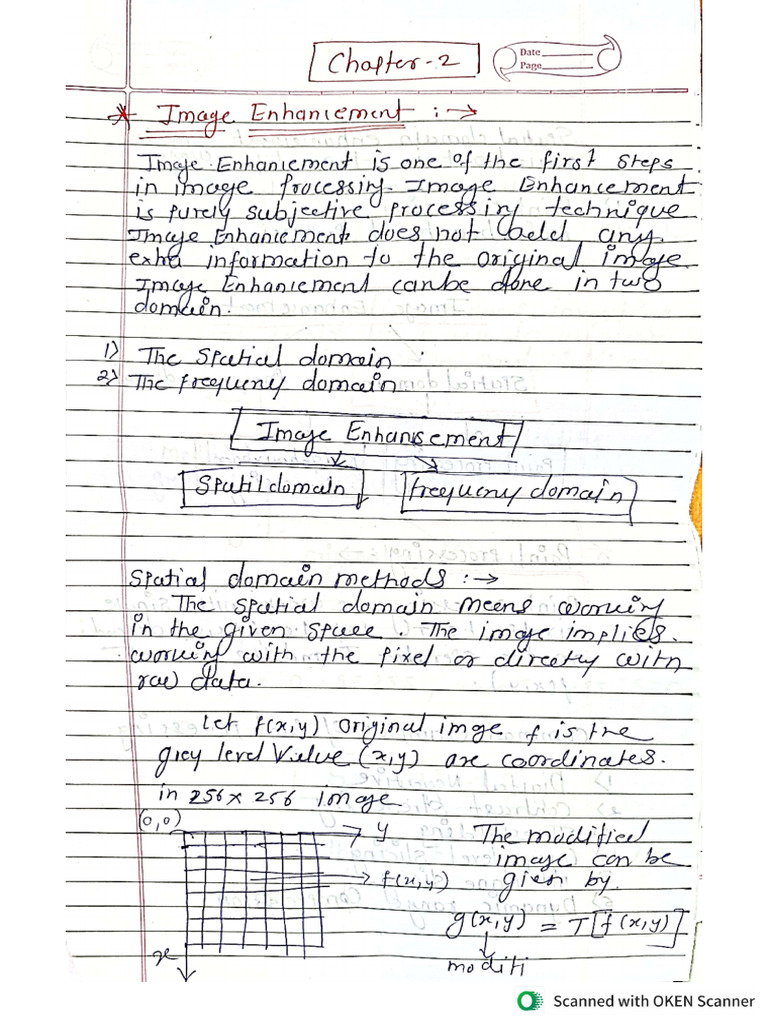 Chapter-2
Date
Page
* Image Enhancement :→
Image Enhancement is one of the first steps
in image processing. Image Enhancement
is purely subjective processing technique
Image Enhancement does not add any
extra information to the original image.
Image Enhancement can be done in two
domain.
1) The spatial domain :
2) The frequeny domain
Image Enhansement
Spatil domain
frequeny domain
Spatial domain methods :→
The spatial domain means working
in the given space. The image implies.
working with the pixel or directly with
raw data.
Let f(x,y) original imge f is the
grey level value (x,y) are coordinates.
in 256x256 image
(0,0)
y
The modified
image can be
f(x,y)
given by.
g(x,y) = T[f(x,y)]
x
moditi
Scanned with OKEN Scanner